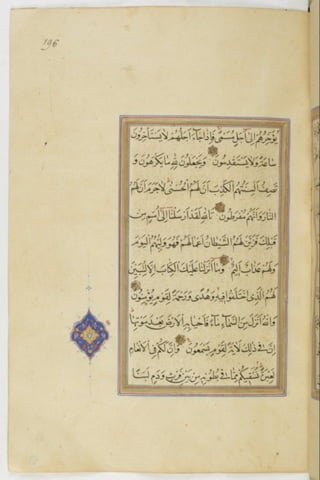 196
يُؤَخِّرُهُمْ إِلَىٰ أَجَلٍ مُسَمًّى فَإِذَا جَاءَ أَجَلُهُمْ لَا يَسْتَأْخِرُونَ
سَاعَةً وَلَا يَسْتَقْدِمُونَ وَيَجْعَلُونَ لِلَّهِ مَا يَكْرَهُونَ وَ
تَصِفُ أَلْسِنَتُهُمُ الْكَذِبَ أَنَّ لَهُمُ الْحُسْنَىٰ لَا جَرَمَ أَنَّ لَهُمُ
النَّارَ وَأَنَّهُمْ مُفْرَطُونَ تَاللَّهِ لَقَدْ أَرْسَلْنَا إِلَىٰ أُمَمٍ مِنْ
قَبْلِكَ فَزَيَّنَ لَهُمُ الشَّيْطَانُ أَعْمَالَهُمْ فَهُوَ وَلِيُّهُمُ الْيَوْمَ
وَلَهُمْ عَذَابٌ أَلِيمٌ وَمَا أَنْزَلْنَا عَلَيْكَ الْكِتَابَ إِلَّا لِتُبَيِّنَ
لَهُمُ الَّذِي اخْتَلَفُوا فِيهِ وَهُدًى وَرَحْمَةً لِقَوْمٍ يُؤْمِنُونَ
وَاللَّهُ أَنْزَلَ مِنَ السَّمَاءِ مَاءً فَأَحْيَا بِهِ الْأَرْضَ بَعْدَ مَوْتِهَا
إِنَّ فِي ذَٰلِكَ لَآيَةً لِقَوْمٍ يَسْمَعُونَ وَإِنَّ لَكُمْ فِي الْأَنْعَامِ
لَعِبْرَةً نُسْقِيكُمْ مِمَّا فِي بُطُونِهِ مِنْ بَيْنِ فَرْثٍ وَدَمٍ لَبَنًا